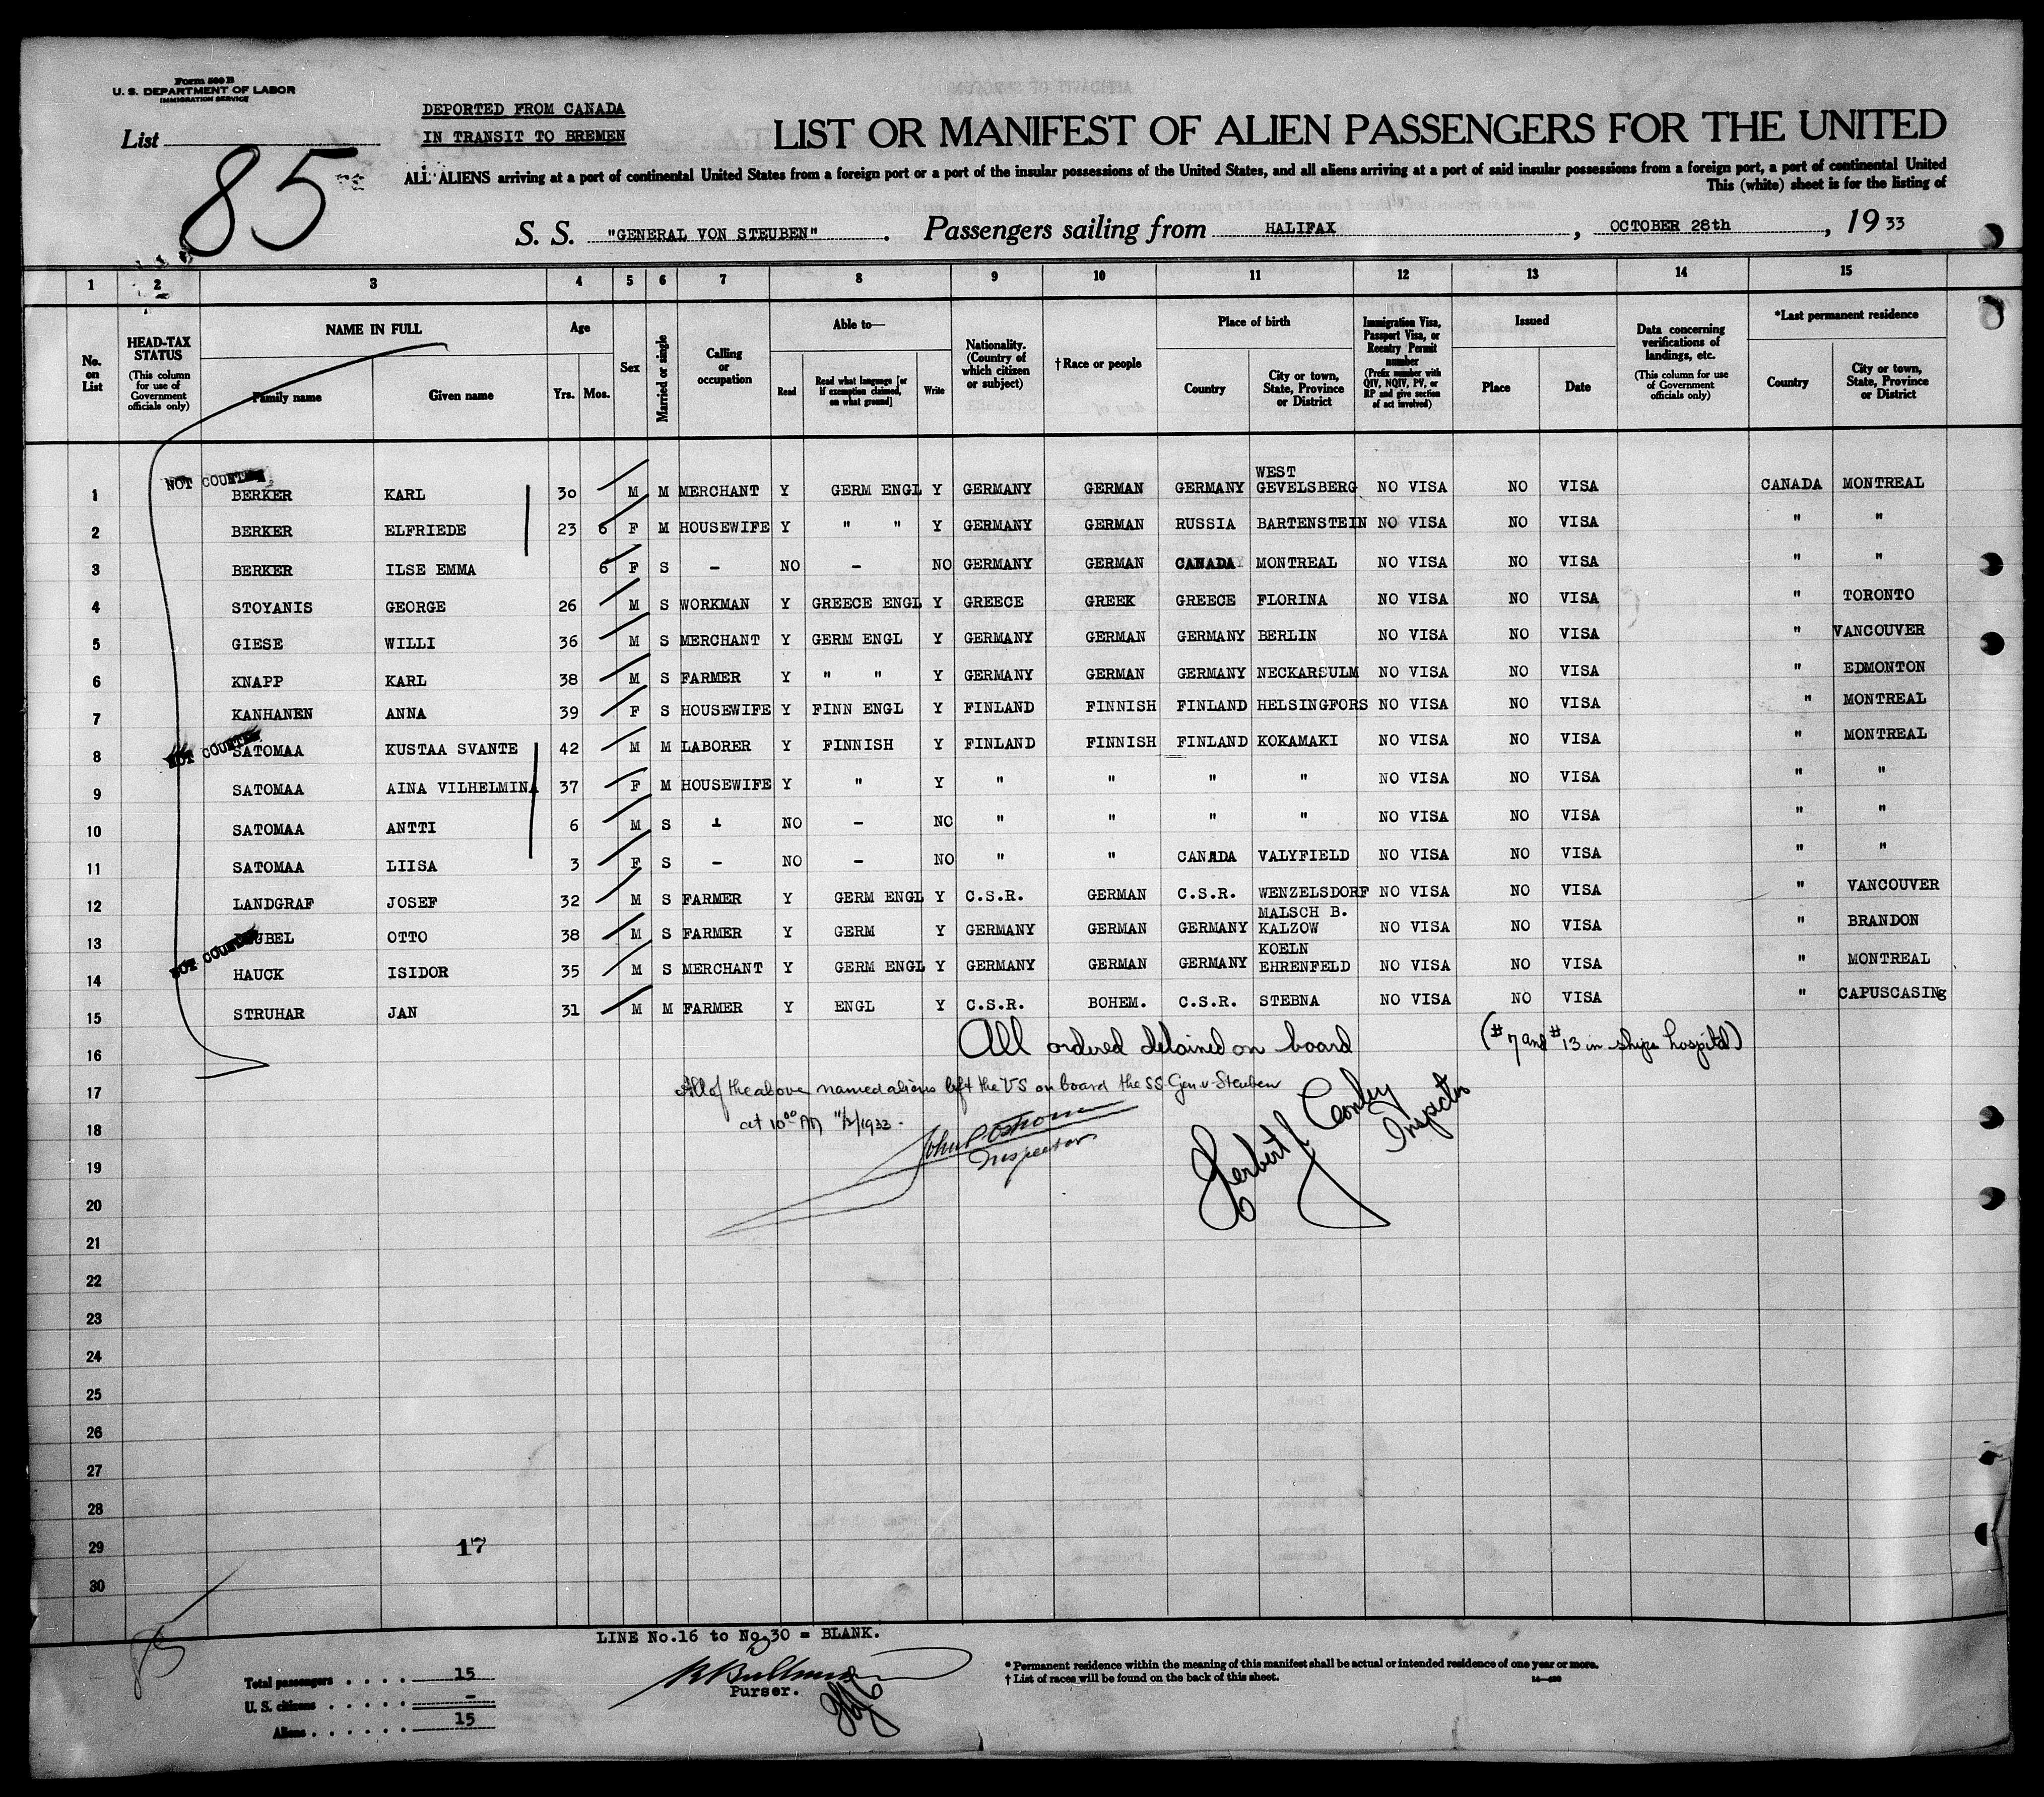 Form 500 B
U. S. DEPARTMENT OF LABOR
IMMIGRATION SERVICE
List
85
DEPORTED FROM CANADA
IN TRANSIT TO BREMEN
LIST OR MANIFEST OF ALIEN PASSENGERS FOR THE UNITED
ALL ALIENS arriving at a port of continental United States from a foreign port or a port of the insular possessions of the United States, and all aliens arriving at a port of said insular possessions from a foreign port, a port of continental United
This (white) sheet is for the listing of
S. S. "GENERAL VON STEUBEN". Passengers sailing from HALIFAX, OCTOBER 28th, 1933
1 2 3 4 5 6 7 8 9 10 11 12 13 14 15
No. on List
HEAD-TAX STATUS (This column for use of Government officials only)
NAME IN FULL
Family name Given name
Age
Yrs. Mos.
Sex
Married or single
Calling or occupation
Able to—
Read Read what language [or if exemption claimed, on what ground] Write
Nationality. (Country of which citizen or subject)
† Race or people
Place of birth
Country City or town, State, Province or District
Immigration Visa, Passport Visa, or Reentry Permit number (Prefix number with QIV, NQIV, PV, or RP and give section of act involved)
Issued
Place Date
Data concerning verifications of landings, etc. (This column for use of Government officials only)
*Last permanent residence
Country City or town, State, Province or District
NOT COUNTED
1 BERKER KARL 30 M M MERCHANT Y GERM ENGL Y GERMANY GERMAN GERMANY WEST GEVELSBERG NO VISA NO VISA CANADA MONTREAL
2 BERKER ELFRIEDE 23 6 F M HOUSEWIFE Y " " Y GERMANY GERMAN RUSSIA BARTENSTEIN NO VISA NO VISA " "
3 BERKER ILSE EMMA 6 F S - NO - NO GERMANY GERMAN CANADA MONTREAL NO VISA NO VISA " "
4 STOYANIS GEORGE 26 M S WORKMAN Y GREECE ENGL Y GREECE GREEK GREECE FLORINA NO VISA NO VISA " TORONTO
5 GIESE WILLI 36 M S MERCHANT Y GERM ENGL Y GERMANY GERMAN GERMANY BERLIN NO VISA NO VISA " VANCOUVER
6 KNAPP KARL 38 M S FARMER Y " " Y GERMANY GERMAN GERMANY NECKARSULM NO VISA NO VISA " EDMONTON
7 KANHANEN ANNA 39 F S HOUSEWIFE Y FINN ENGL Y FINLAND FINNISH FINLAND HELSINGFORS NO VISA NO VISA " MONTREAL
NOT COUNTED
8 SATOMAA KUSTAA SVANTE 42 M M LABORER Y FINNISH Y FINLAND FINNISH FINLAND KOKAMAKI NO VISA NO VISA " MONTREAL
9 SATOMAA AINA VILHELMINA 37 F M HOUSEWIFE Y " Y " " " " NO VISA NO VISA " "
10 SATOMAA ANTTI 6 M S - NO - NO " " " " NO VISA NO VISA " "
11 SATOMAA LIISA 3 F S - NO - NO " " CANADA VALYFIELD NO VISA NO VISA " "
12 LANDGRAF JOSEF 32 M S FARMER Y GERM ENGL Y C.S.R. GERMAN C.S.R. WENZELSDORF NO VISA NO VISA " VANCOUVER
13 OTTO 38 M S FARMER Y GERM Y GERMANY GERMAN GERMANY MALSCH B. KALZOW NO VISA NO VISA " BRANDON
NOT COUNTED
14 HAUCK ISIDOR 35 M S MERCHANT Y GERM ENGL Y GERMANY GERMAN GERMANY KOELN EHRENFELD NO VISA NO VISA " MONTREAL
15 STRUHAR JAN 31 M M FARMER Y ENGL Y C.S.R. BOHEM. C.S.R. STEBNA NO VISA NO VISA " CAPUSCASINg
16 All ordered detained on board (#7 and #13 in ships hospital)
17 All of the above named aliens left the US on board the SS Gen v Steuben
18 at 10⁰⁰ AM 11/2/1933.
Inspector
Herbert J. Inspector
19
20
21
22
23
24
25
26
27
28
29
17
30
85
LINE No.16 to No.30 = BLANK.
Total passengers . . . . 15
U. S. citizens . . . . . -
Aliens . . . . . . 15
Purser.
* Permanent residence within the meaning of this manifest shall be actual or intended residence of one year or more.
† List of races will be found on the back of this sheet.